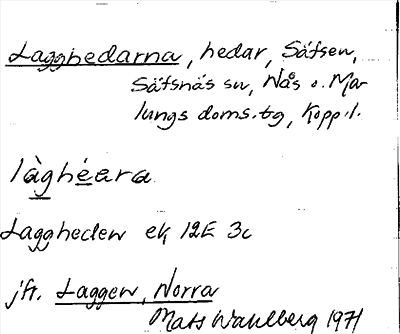 Lagghedarna, hedar, Säfsen,
Säfsnäs sn, Nås o. Ma-
lungs doms.tg, Kopp.l.
làghéara
Laggheden ek 12E 3c
jfr. Laggen, Norra
Mats Wahlberg 1971